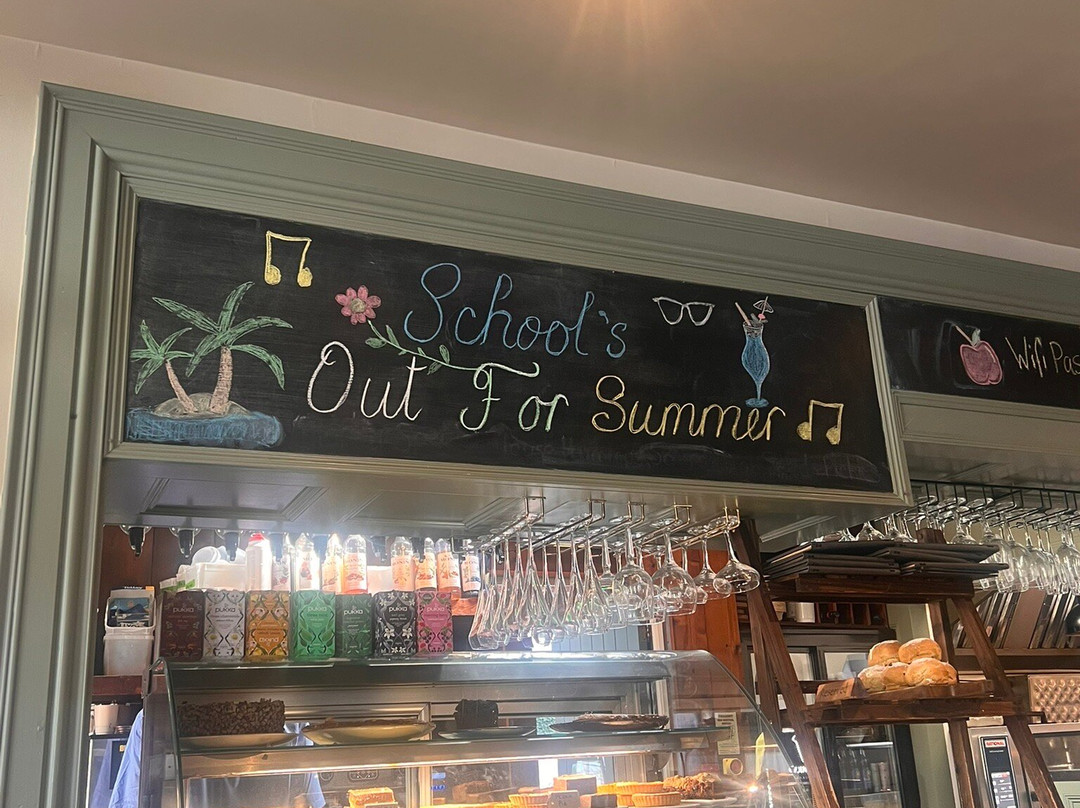 School's
Out For Summer
Wifi Pas
pukka
pukka
pukka
pukka
pukka
pukka